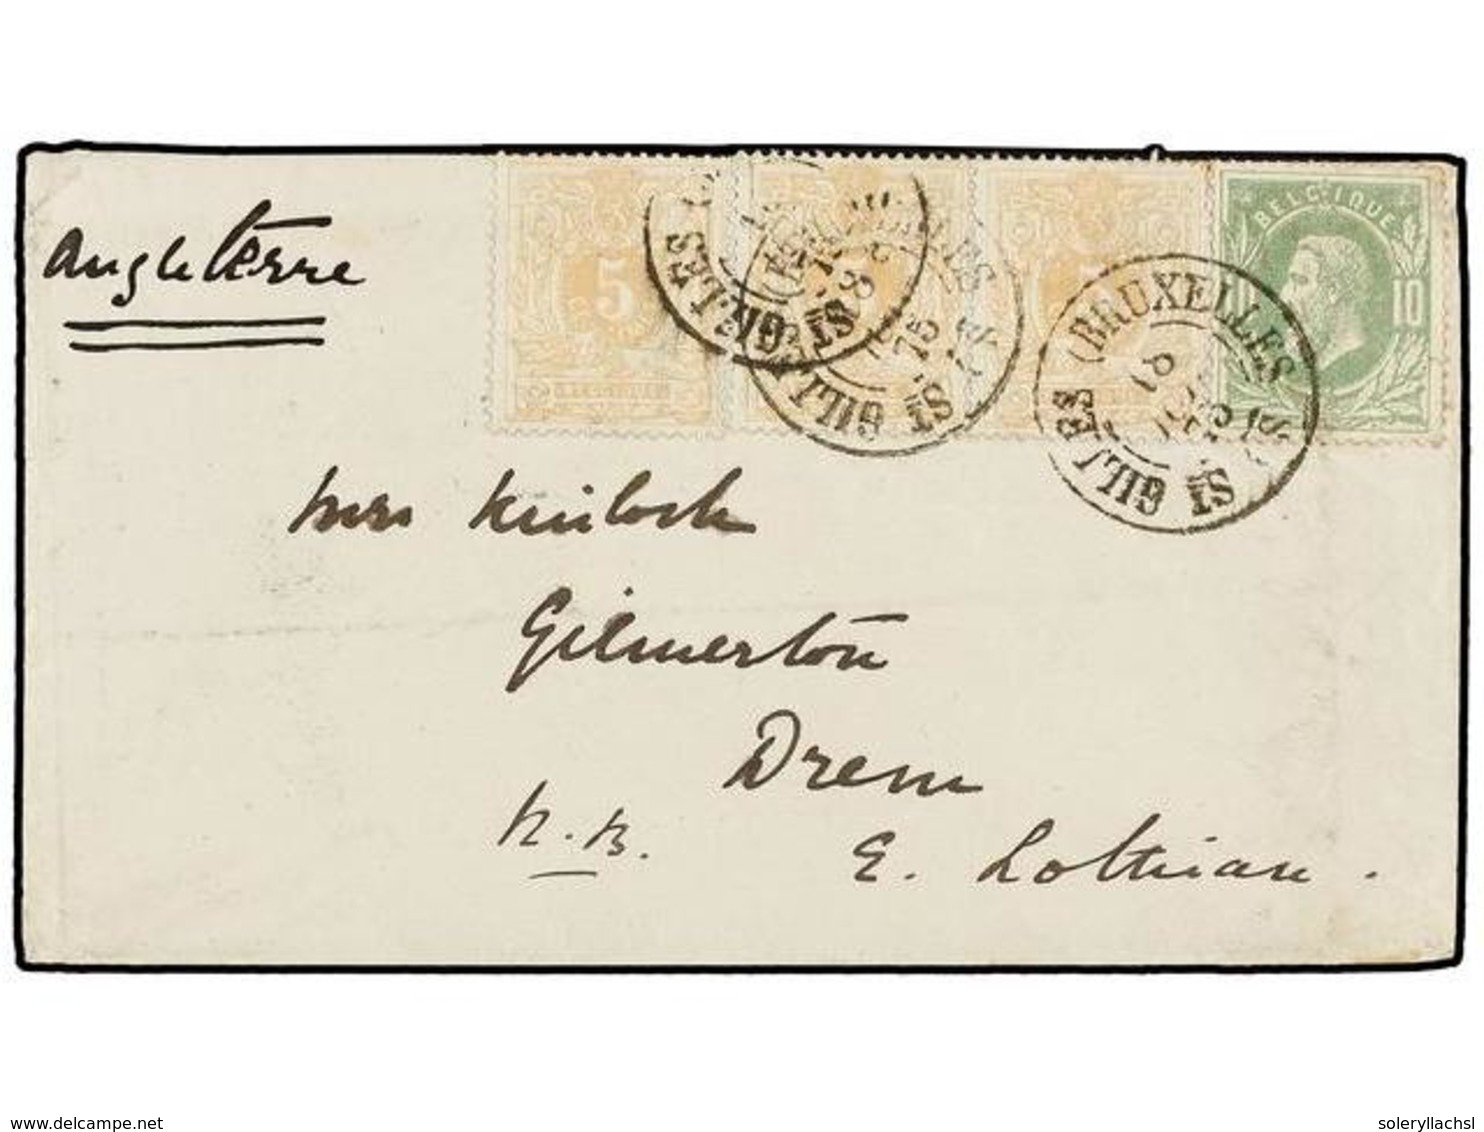 Angleterre
5
5
BELGIQUE
10 10
ST GILLES (BRUXELLES)
75
ST GILLES (BRUXELLES)
ST GILLES (BRUXELLES)
Mrs Kinloch
Gilmerton
Drem
N.B.
E. Lothian.
www.delcampe.net
soleryllachsl